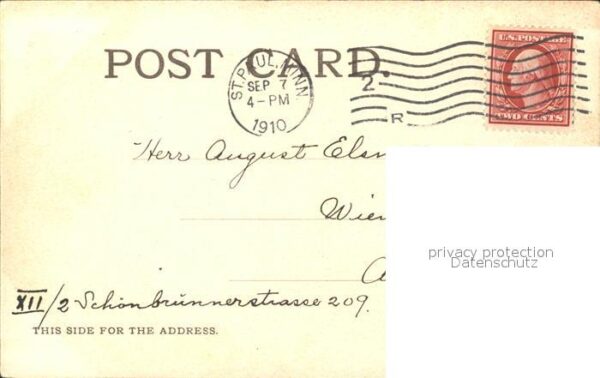 POST CARD.
ST. PAUL, MINN.
SEP 7
4-PM
1910
2
R
U.S. POSTAGE
TWO CENTS
Herr August
Wien
privacy protection
Datenschutz
XII/2 Schönbrunnerstrasse 209.
THIS SIDE FOR THE ADDRESS.